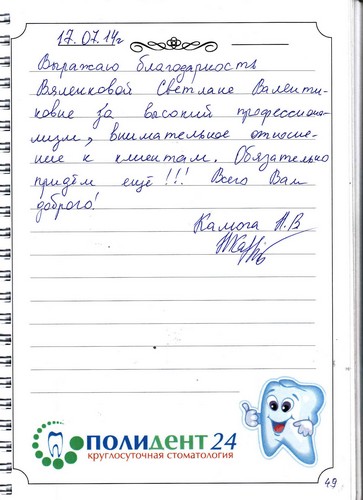 17.07.14г
Выражаю благодарность
Вяленковой Светлане Валенти-
новне за высокий профессиона-
лизм, внимательное отноше-
ние к клиентам. Обязательно
придём ещё!!! Всего Вам
доброго!
Камога Н.В
ПОЛИДЕНТ 24
круглосуточная стоматология
49